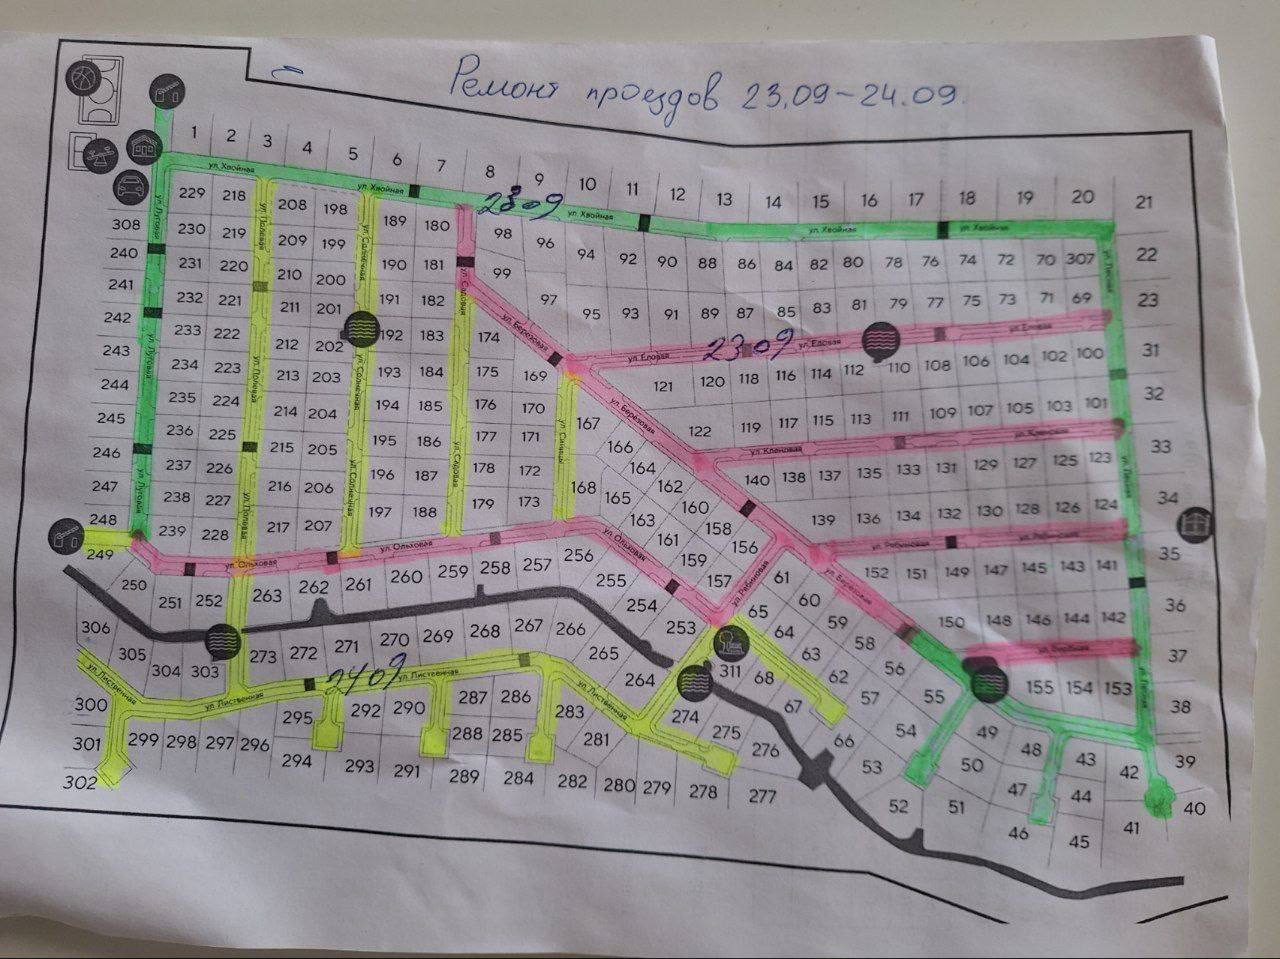 Ремонт проездов 23.09-24.09.
1 2 3 4 5 6 7 8 9 10 11 12 13 14 15 16 17 18 19 20 21
ул. Хвойная ул. Хвойная 23 09 ул. Хвойная ул. Хвойная ул. Хвойная
229 218 208 198 189 180 98 96 94 92 90 88 86 84 82 80 78 76 74 72 70 307 22
308 230 219 209 199 190 181 99 97 95 93 91 89 87 85 83 81 79 77 75 73 71 69 23
240 231 220 210 200 191 182
241 232 221 211 201 192 183 174
242 233 222 212 202 193 184 175 169
243 234 223 213 203 194 185 176 170
244 235 224 214 204 195 186 177 171
245 236 225 215 205 196 187 178 172
246 237 226 216 206 197 188 179 173
247 238 227 217 207
248 239 228
249
ул. Луговая
ул. Луговая
ул. Луговая
ул. Полевая
ул. Полевая
ул. Полевая
ул. Солнечная
ул. Солнечная
ул. Солнечная
ул. Садовая
ул. Садовая
ул. Синицы
ул. Березовая
ул. Березовая
ул. Березовая
ул. Еловая 23 09 ул. Еловая ул. Еловая
121 120 118 116 114 112 110 108 106 104 102 100 31
122 119 117 115 113 111 109 107 105 103 101 32
ул. Кленовая ул. Кленовая
140 138 137 135 133 131 129 127 125 123 33
139 136 134 132 130 128 126 124 34
ул. Рябиновая ул. Рябиновая
152 151 149 147 145 143 141 35
150 148 146 144 142 36
155 154 153 37
38
39
40
ул. Лесная
ул. Лесная
ул. Лесная
167 166 164 162 160 158 156
168 165 163 161 159 157
ул. Рябиновая
ул. Ольховая ул. Ольховая ул. Ольховая
250 251 252 263 262 261 260 259 258 257 256 255 254 253
306 305 304 303 273 272 271 270 269 268 267 266 265 264
61 60 59 58 56 55 54
65 64 63 62 57
311 68 67 66 53 52 51 50 49 48 47 46 45 44 43 42 41
ул. Лиственная ул. Лиственная 24 09 ул. Лиственная ул. Лиственная
300 301 302 299 298 297 296 295 294 293 292 291 290 289 288 287 286 285 284 283 282 281 280 279 278 277 276 275 274